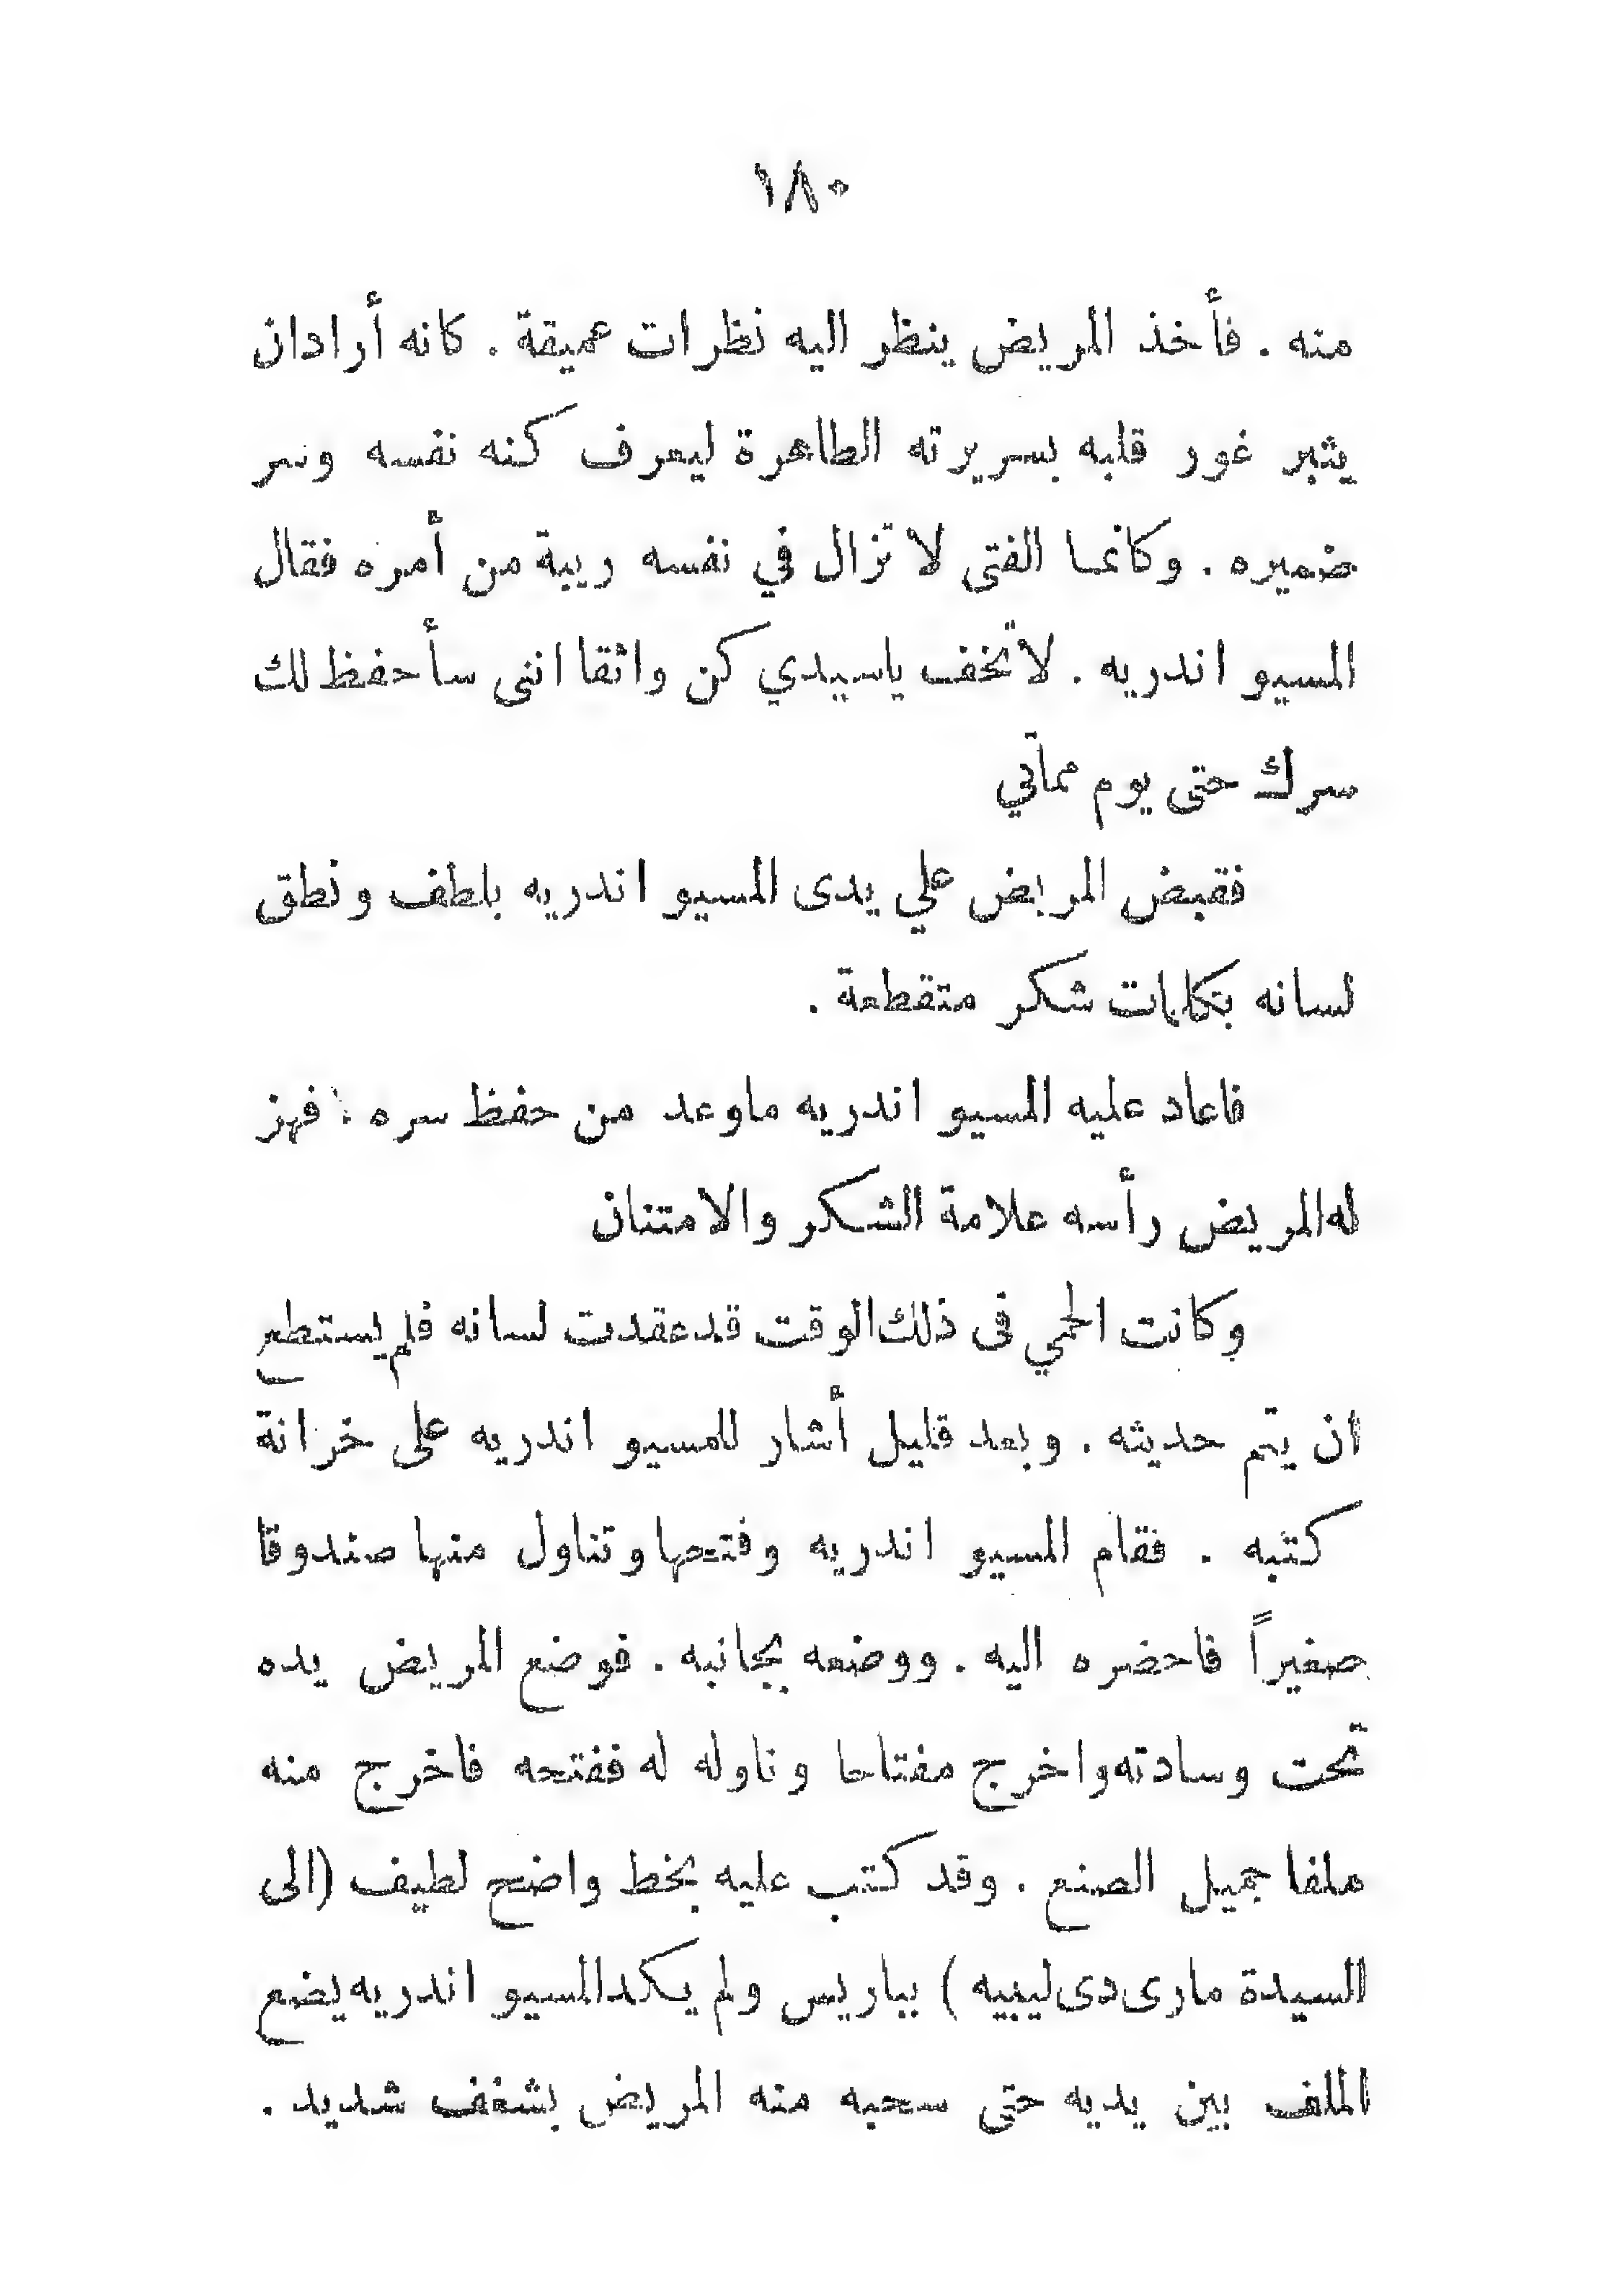 ١٨٠
منه . فأخذ المريض ينظر اليه نظرات عميقة . كانه أراد ان
يثبر غور قلبه بسريرته الطاهرة ليعرف كنه نفسه وسر
ضميره . وكأنما الفتى لا تزال في نفسه ريبة من أمره فقال
المسيو اندريه . لا تخف ياسيدي كن واثقا انني سأحفظ لك
سرك حتى يوم مماتي
فقبض المريض علي يدى المسيو اندريه بلطف ونطق
لسانه بكلمات شكر متقطعة .
فاعاد عليه المسيو اندريه ماوعد من حفظ سره . فهز
له المريض رأسه علامة الشكر والامتنان
وكانت الحمي فى ذلك الوقت قد عقدت لسانه فلم يستطع
ان يتم حديثه . وبعد قليل أشار للمسيو اندريه على خزانة
كتبه . فقام المسيو اندريه وفتحها وتناول منها صندوقا
صغيراً فاحضره اليه . ووضعه بجانبه . فوضع المريض يده
تحت وسادته واخرج مفتاحا وناوله له ففتحه فاخرج منه
ملفا جميل الصنع . وقد كتب عليه بخط واضح لطيف (الى
السيدة مارى دى ليبيه ) بباريس ولم يكد المسيو اندريه يضع
الملف بين يديه حتى سحبه منه المريض بشغف شديد .